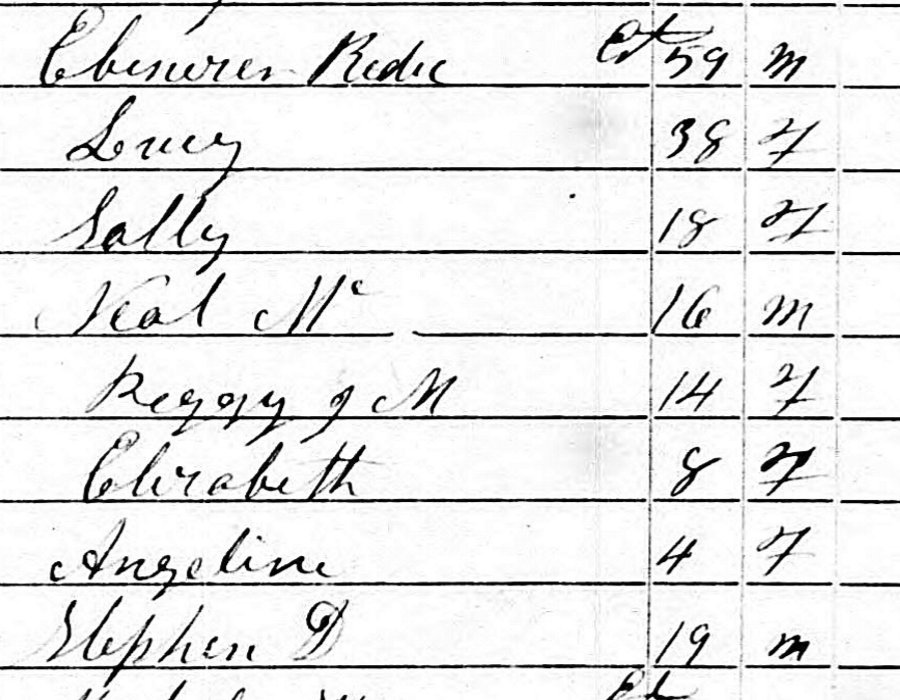 Ebenezer Redic 59 m
Lucy 38 F
Sally 18 F
Neal Mc 16 m
Peggy J M 14 F
Elizabeth 8 F
Angeline 4 F
Stephen D 19 m